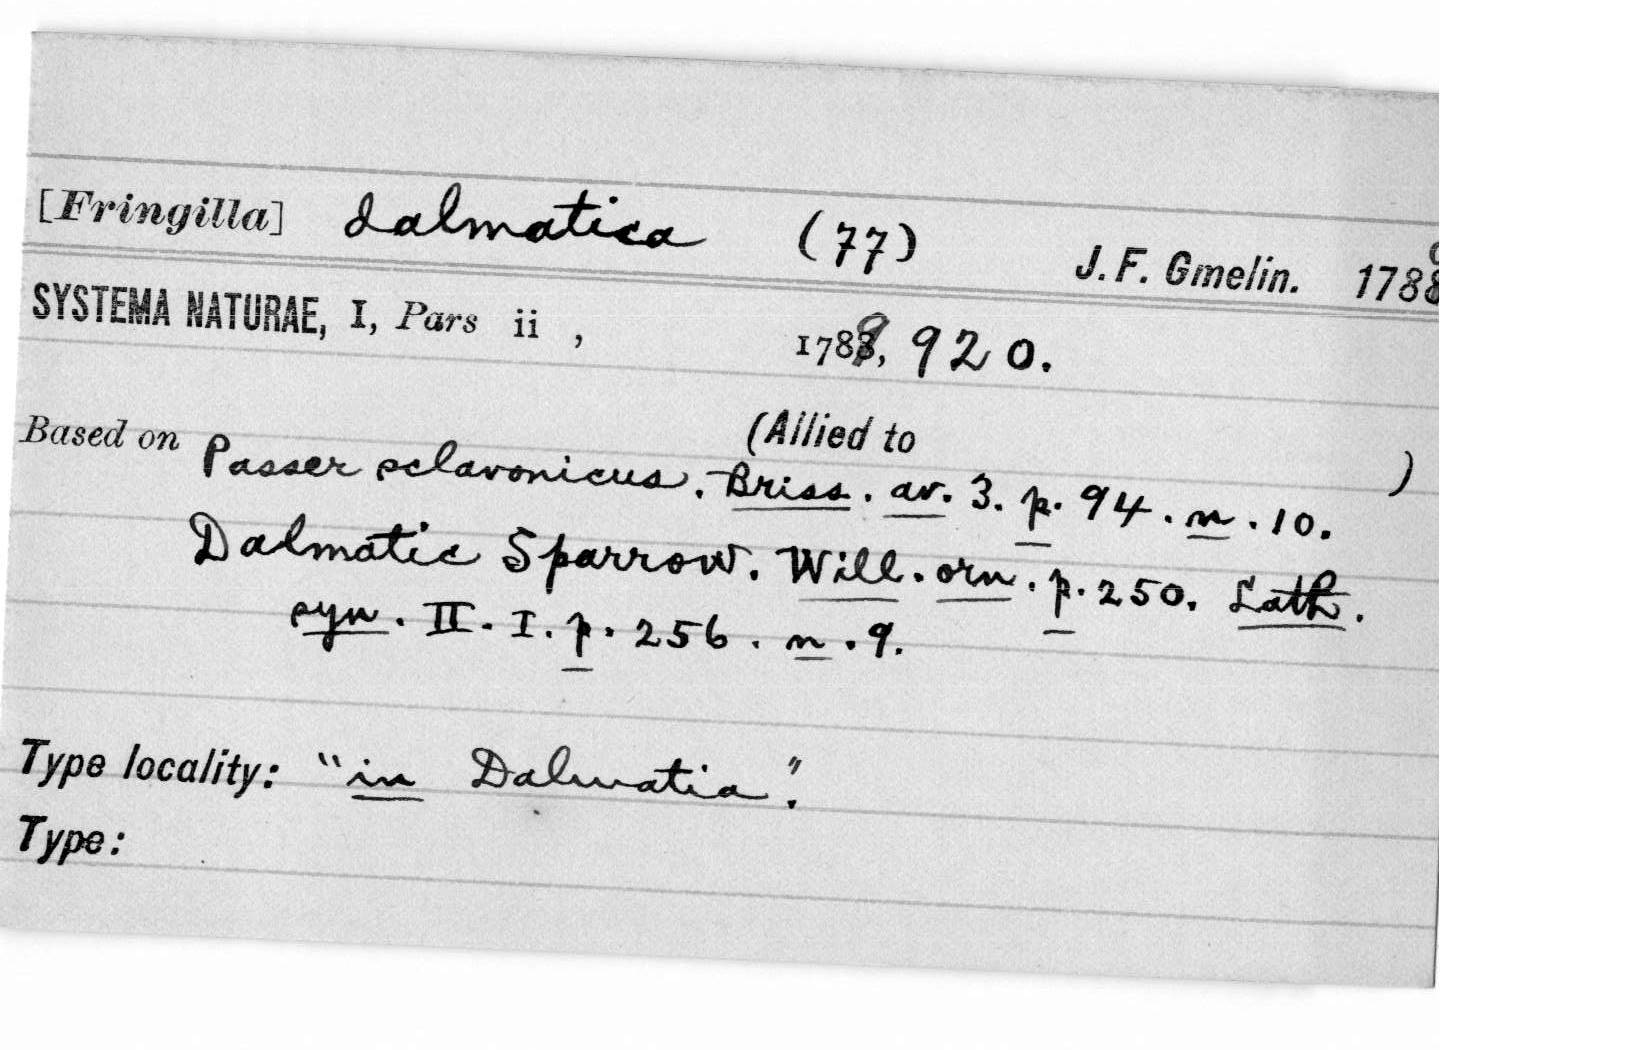 [Fringilla] dalmatica (77) J. F. Gmelin. 1789
SYSTEMA NATURAE, I, Pars ii , 1789, 920.
(Allied to )
Based on Passer sclavonicus. Briss. av. 3. p. 94. n. 10.
Dalmatic Sparrow. Will. orn. p. 250. Lath.
syn. II. I. p. 256. n. 9.
Type locality: "in Dalmatia".
Type: